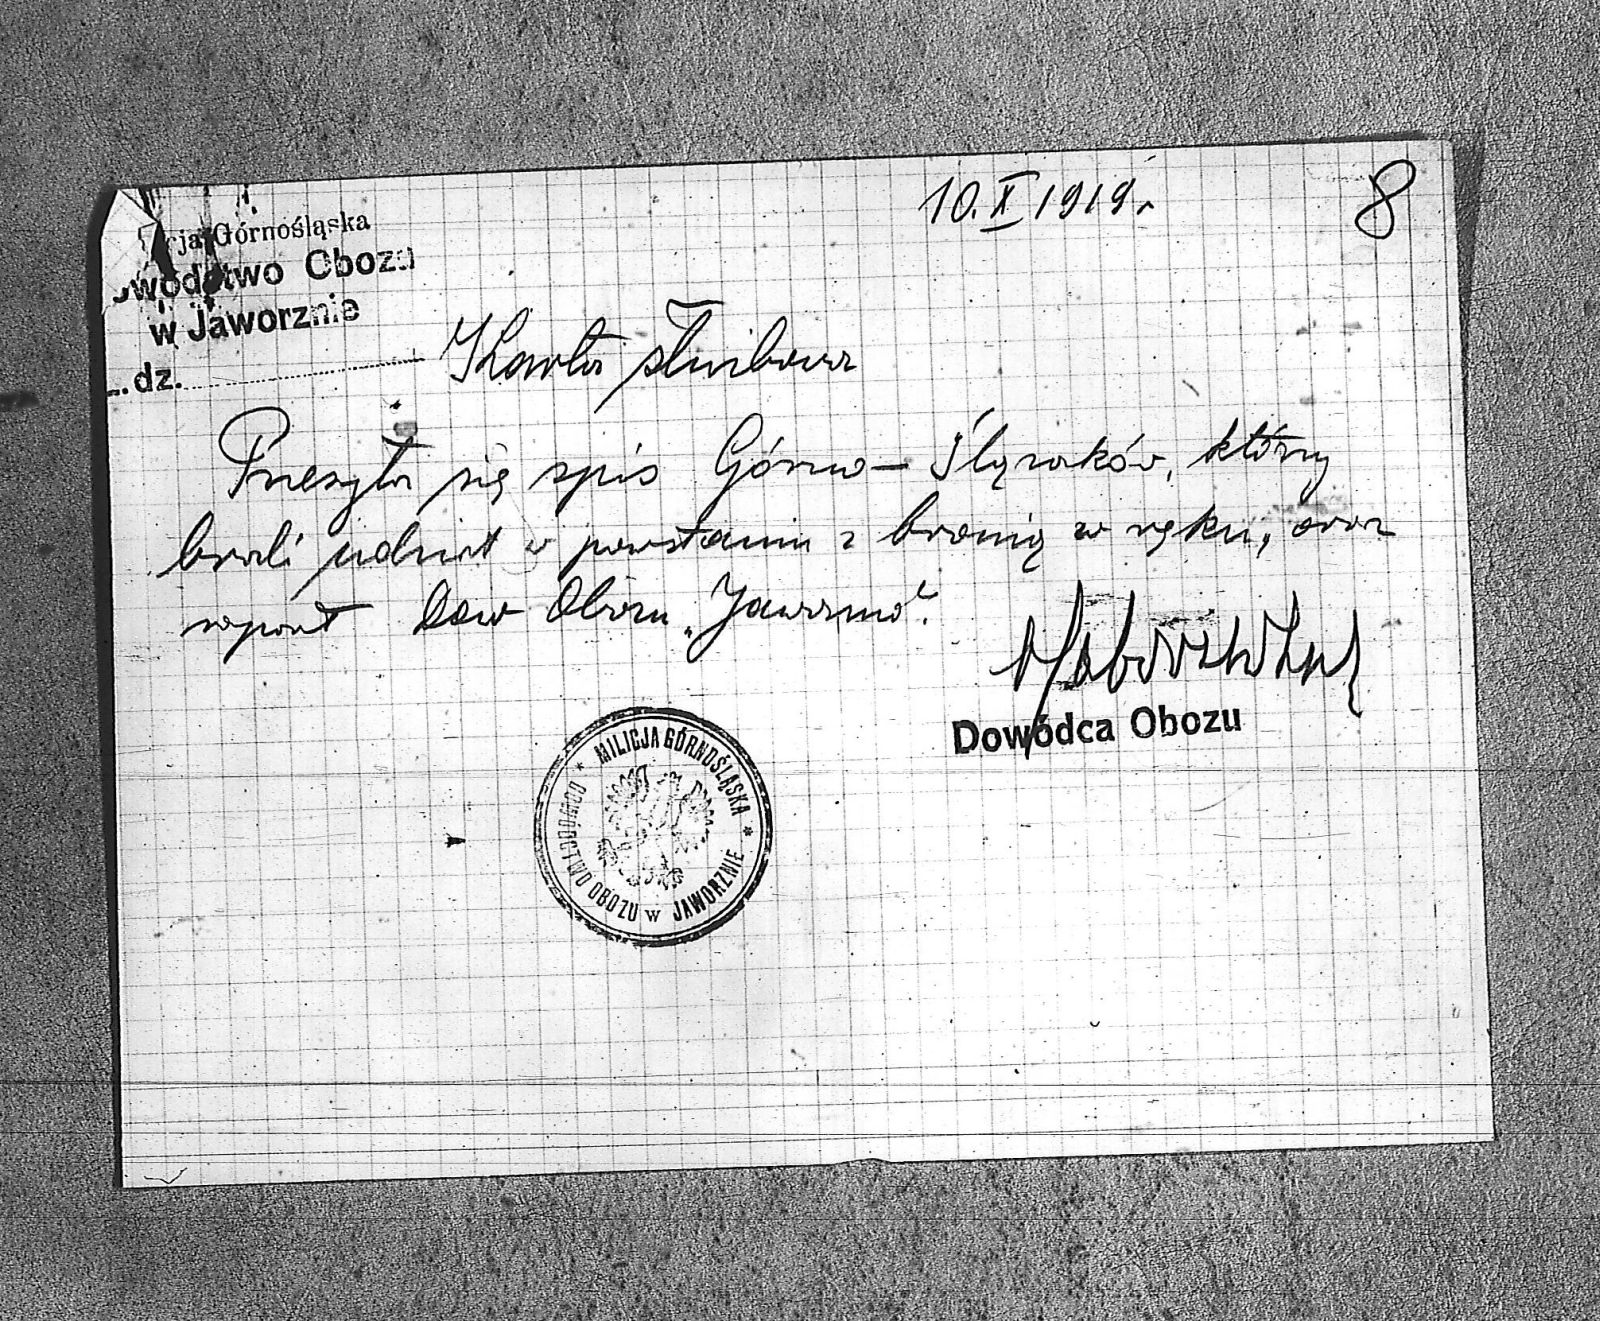 10.X 1919 r
8
ja Górnośląska
wództwo Obozu
w Jaworznie
dz.
Karta służbowa
Przesyła się spis Górno-Ślązaków, którzy
brali udział w powstaniu z bronią w ręku, oraz
raport Dow Obozu "Jaworzno".
Dowódca Obozu
* MILICJA GÓRNOŚLĄSKA *
DOWÓDCTWO OBOZU w JAWORZNIE